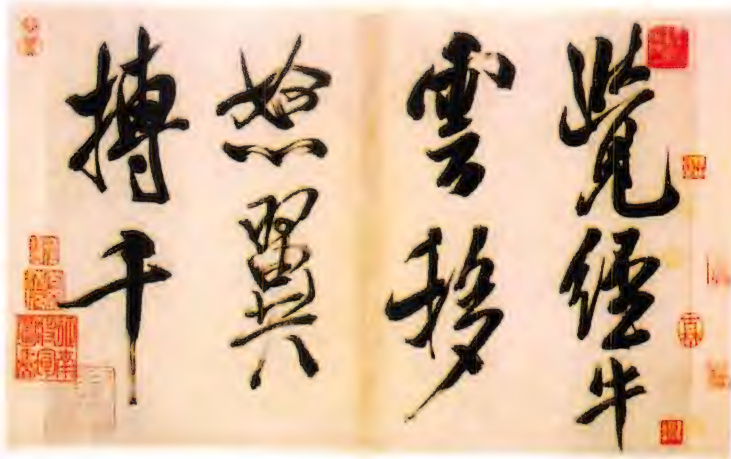 覺經牛
雲移
怒翼
搏千